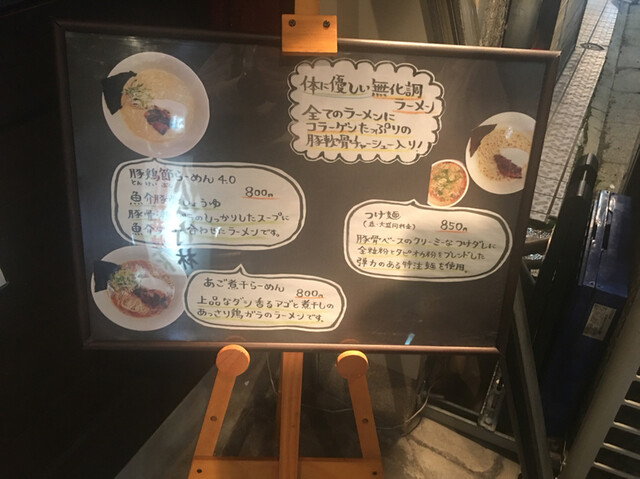 体に優しい無化調
ラーメン
全てのラーメンに
コラーゲンたっぷりの
豚軟骨チャーシュー入り!
豚鶏節らーめん 4.0
とんけい
800円
魚介豚
しょうゆ
のしっかりしたスープに
合わせたラーメンです。
つけ麺
850円
豚骨ベースのクリーミーなつけダレに
全粒粉とタピオカ粉をブレンドした
弾力のある特注麺を使用。
あご煮干らーめん
800円
上品なダシ香るアゴと煮干しの
あっさり鶏ガラのラーメンです。